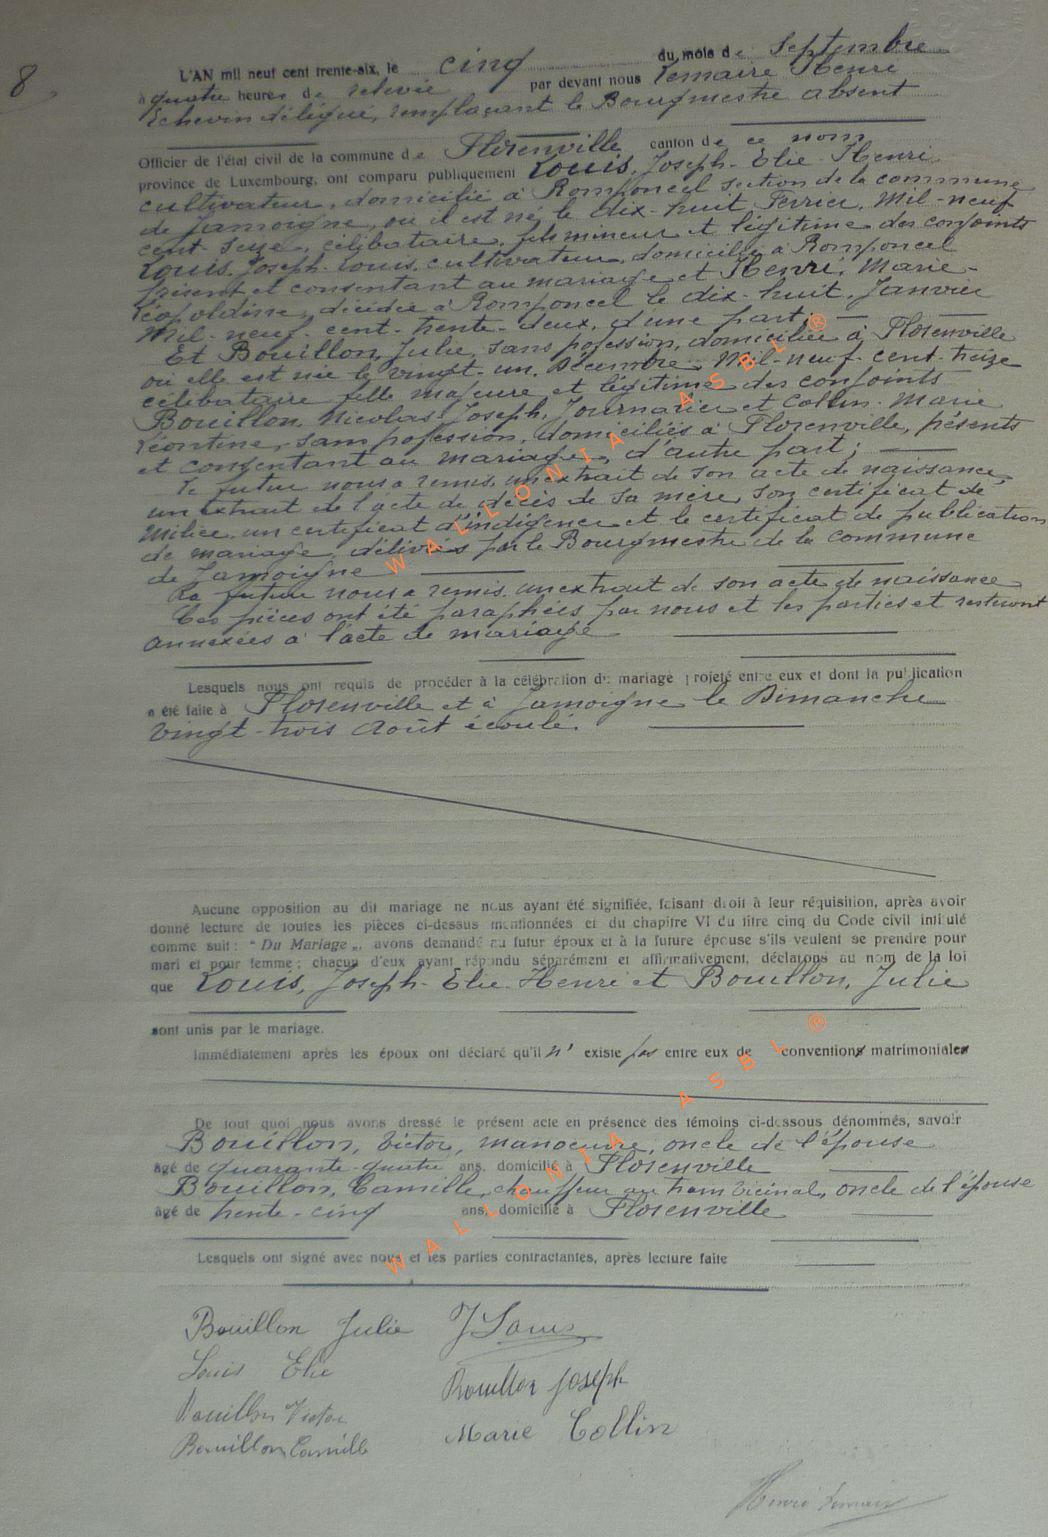 8
L'AN mil neuf cent trente-six, le cinq du mois de Septembre
à quatre heures de relevée par devant nous Lemaire Henri
Echevin délégué, remplaçant le Bourgmestre absent
Officier de l'état civil de la commune de Florenville canton de ce nom
province de Luxembourg, ont comparu publiquement Louis, Joseph-Elie-Henri
cultivateur, domicilié à Romponcel section de la commune
de Jamoigne, où il est né, le dix-huit Février, Mil-neuf
cent-seize, célibataire, fils mineur et légitime des conjoints
Louis, Joseph-Louis, cultivateur, domicilié à Romponcel
présent et consentant au mariage et Henri, Marie-
Léopoldine, décédée à Romponcel le dix-huit, Janvier
Mil-neuf-cent-trente-deux, d'une part;
Et Bouillon, Julie, sans profession, domiciliée à Florenville
où elle est née le vingt-un, Décembre, Mil-neuf-cent-treize
célibataire fille majeure et légitime des conjoints
Bouillon, Nicolas-Joseph, Journalier et Collin-Marie
Léontine, sans profession, domiciliés à Florenville, présents
et consentant au mariage, d'autre part;
Le futur nous a remis, un extrait de son acte de naissance,
un extrait de l'acte de décès de sa mère, son certificat de
Milice, un certificat d'indigence et le certificat de publication
de mariage, délivrés par le Bourgmestre de la commune
de Jamoigne
La future nous a remis, un extrait de son acte de naissance
Ces pièces ont été paraphées par nous et les parties et resteront
annexées à l'acte de mariage
Lesquels nous ont requis de procéder à la célébration du mariage projeté entre eux et dont la publication
a été faite à Florenville et à Jamoigne le Dimanche
vingt-trois Août écoulé.
Aucune opposition au dit mariage ne nous ayant été signifiée, faisant droit à leur réquisition, après avoir
donné lecture de toutes les pièces ci-dessus mentionnées et du chapitre VI du titre cinq du Code civil intitulé
comme suit : " Du Mariage ", avons demandé au futur époux et à la future épouse s'ils veulent se prendre pour
mari et pour femme ; chacun d'eux ayant répondu séparément et affirmativement, déclarons au nom de la loi
que Louis, Joseph-Elie-Henri et Bouillon, Julie
sont unis par le mariage.
Immédiatement après les époux ont déclaré qu'il n' existe pas entre eux de conventions matrimoniales
De tout quoi nous avons dressé le présent acte en présence des témoins ci-dessous dénommés, savoir
Bouillon, Victor, manoeuvre, oncle de l'épouse
âgé de quarante-quatre ans, domicilié à Florenville
Bouillon, Camille, chauffeur au tram vicinal, oncle de l'épouse
âgé de trente-cinq ans, domicilié à Florenville
Lesquels ont signé avec nous et les parties contractantes, après lecture faite
Bouillon Julie J Louis
Louis Elie Bouillon Joseph
Bouillon Victor Marie Collin
Bouillon Camille
Henri Lemaire
WALLONIA ASBL ®
WALLONIA ASBL ®